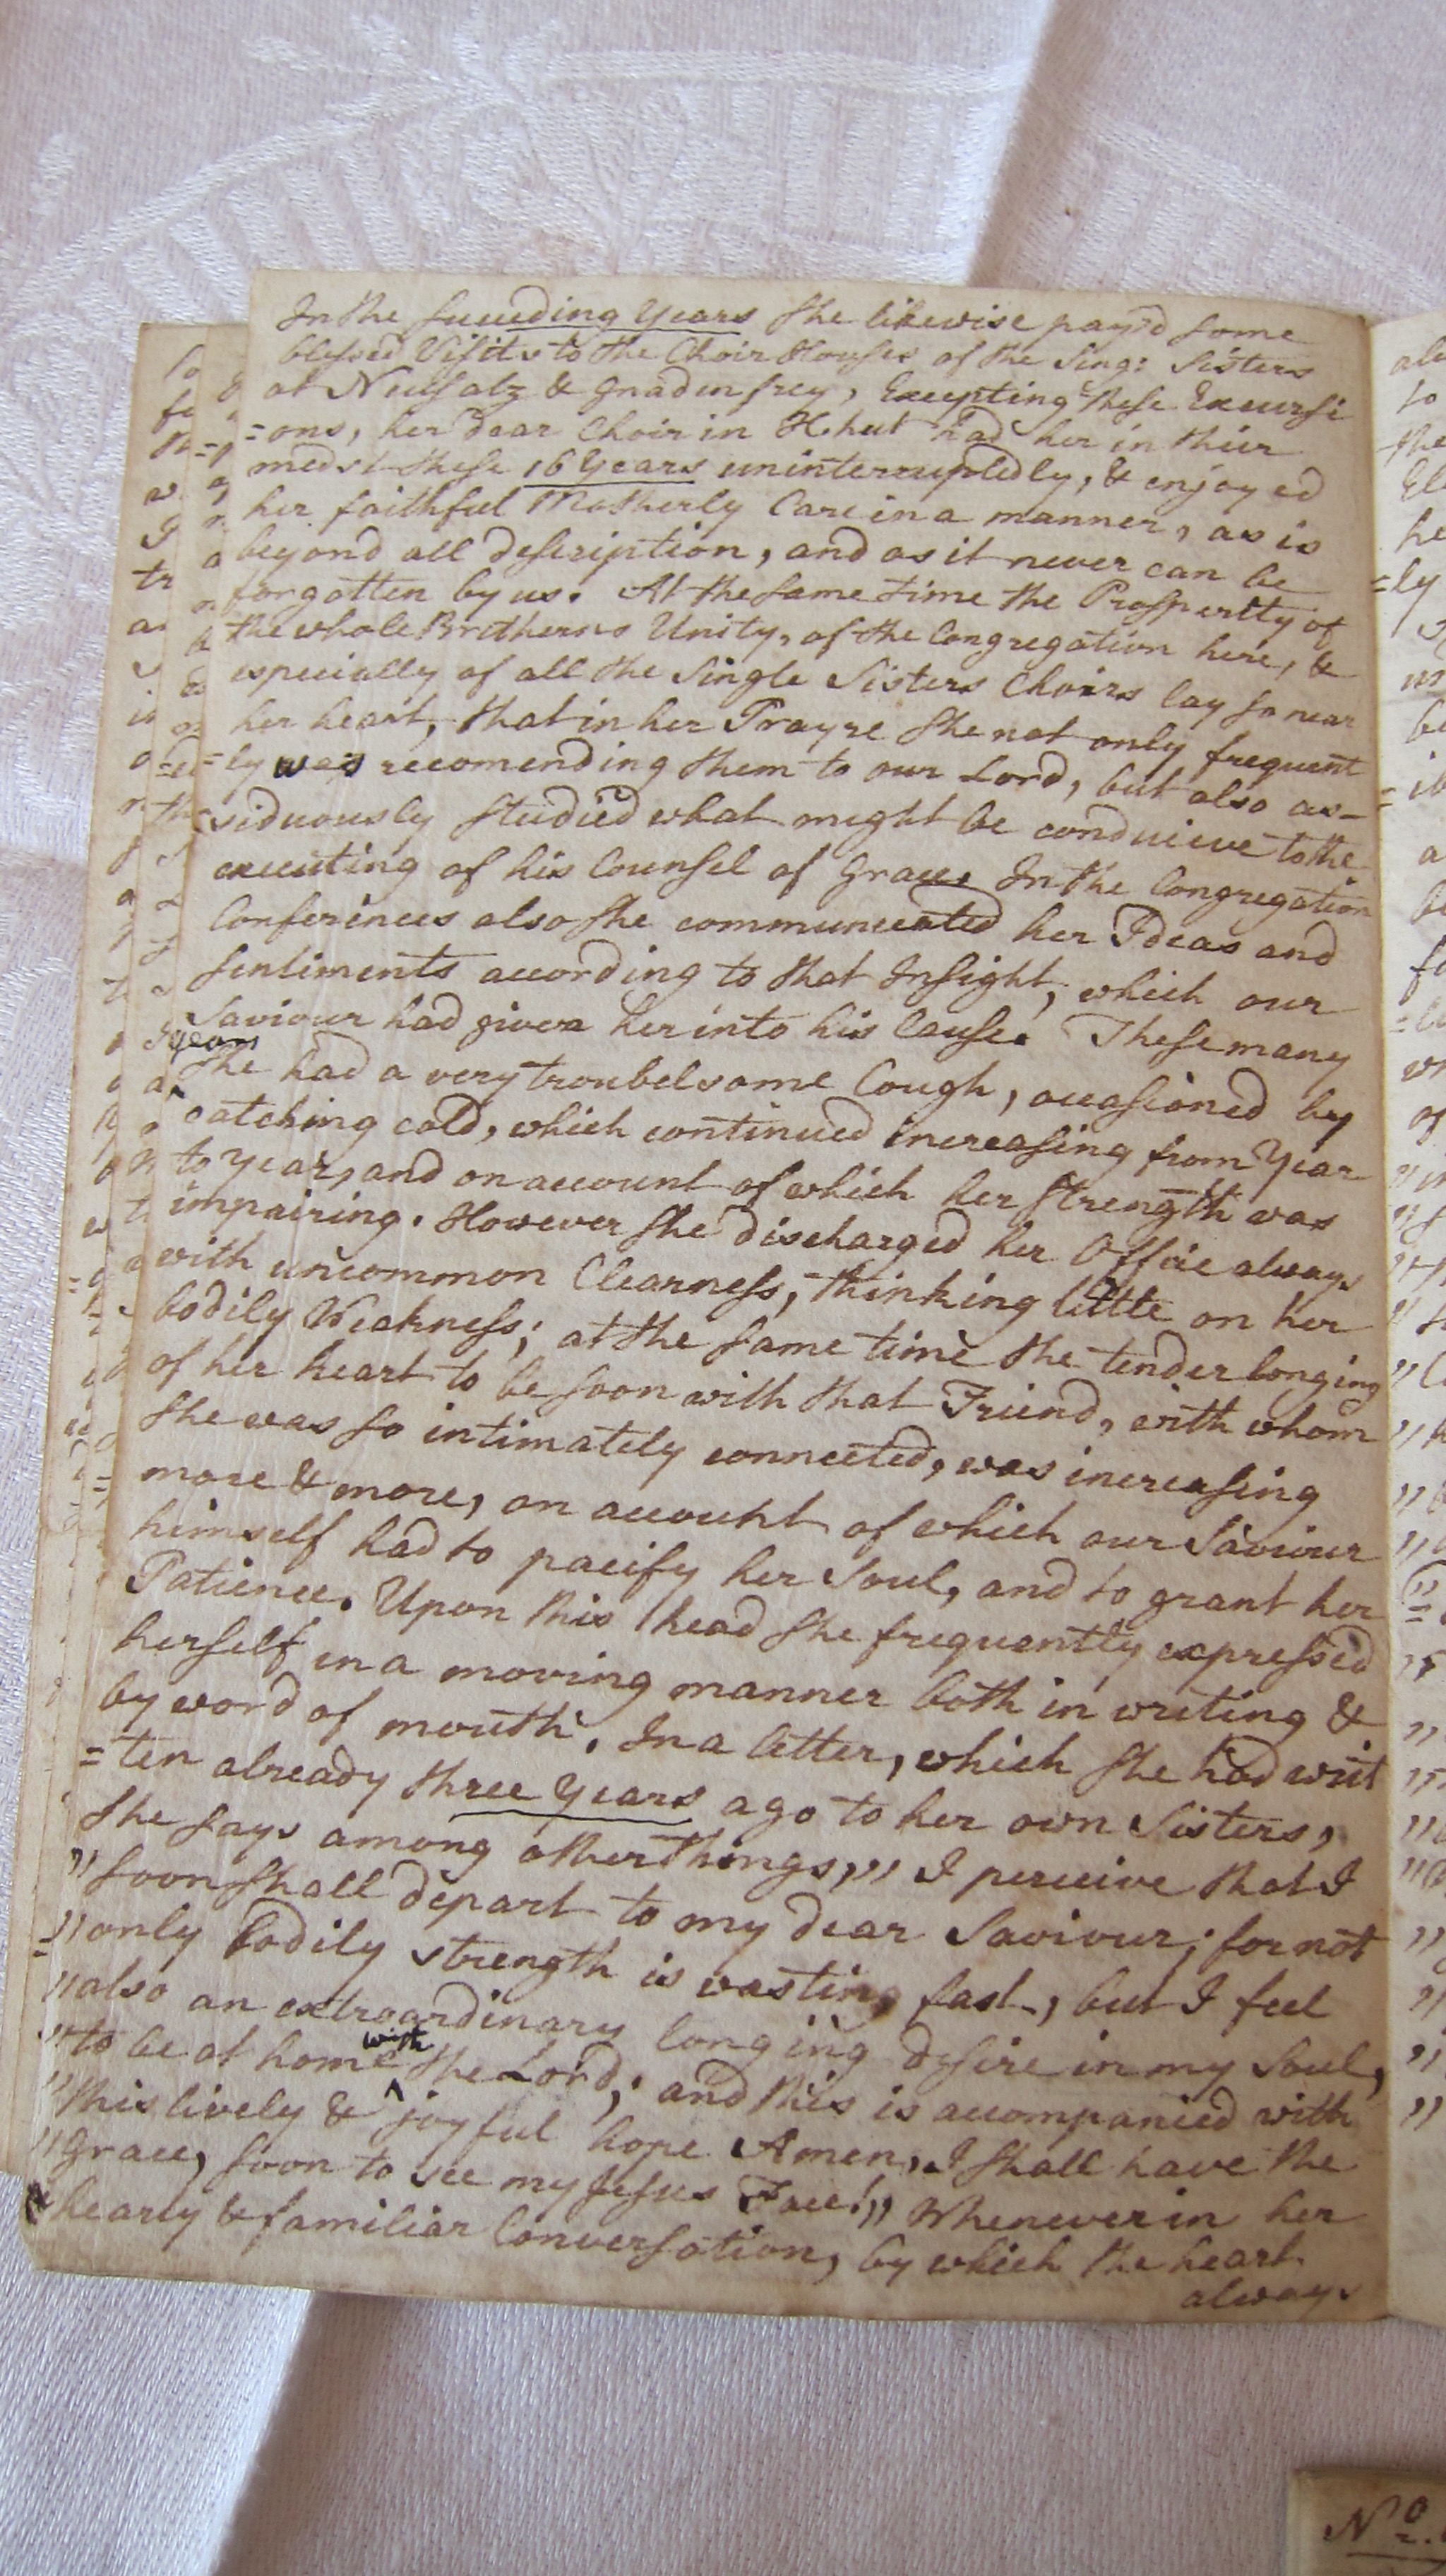 In the succeeding Years she likewise pay'd some
blessed Visits to the Choir Houses of the Sing: Sisters
at Neusalz & Gnadenfrey, Excepting these Excursi
=ons, her dear Choir in H.hut had her in their
medst these 16 Years uninterruptedly, & enjoyed
her faithful Motherly Care in a manner, as is
beyond all description, and as it never can be
forgotten by us. At the same time the Prosperity of
the whole Brethern's Unity, of the Congregation here, &
especially of all the Single Sisters Choirs lay so near
her heart, that in her Prayre she not only frequent
=ly was recomending them to our Lord, but also as-
siduously studied what might be conducive to the
executing of his Counsel of Grace. In the Congregation
Conferences also she communicated her Ideas and
sentiments according to that Insight, which our
Saviour had given her into his Cause. These many
years
she had a very troubelsome Cough, occasioned by
catching cold, which continued increasing from Year
to Year, and on account of which her strength was
impairing. However she discharged her Office always
with uncommon Clearness, thinking little on her
bodily Weakness; at the same time the tender longing
of her heart to be soon with that Friend, with whom
she was so intimately connected, was increasing
more & more, on account of which our Saviour
himself had to pacify her Soul, and to grant her
Patience. Upon this head she frequently expressed
herself in a moving manner both in writing &
by word of mouth. In a letter, which she had writ
=ten already three Years ago to her own Sisters,
she says among other things, „ I perceive that I
„ soon shall depart to my dear Saviour; for not
„ only bodily strength is wasting fast, but I feel
„ also an extroardinary longing desire in my Soul,
with
„ to be at home the Lord; and this is accompanied with
„ this lively & joyful hope Amen, I shall have the
„ Grace, soon to see my Jesus Face!„ Whenever in her
hearty & familiar Conversation, by which the heart
always
No.